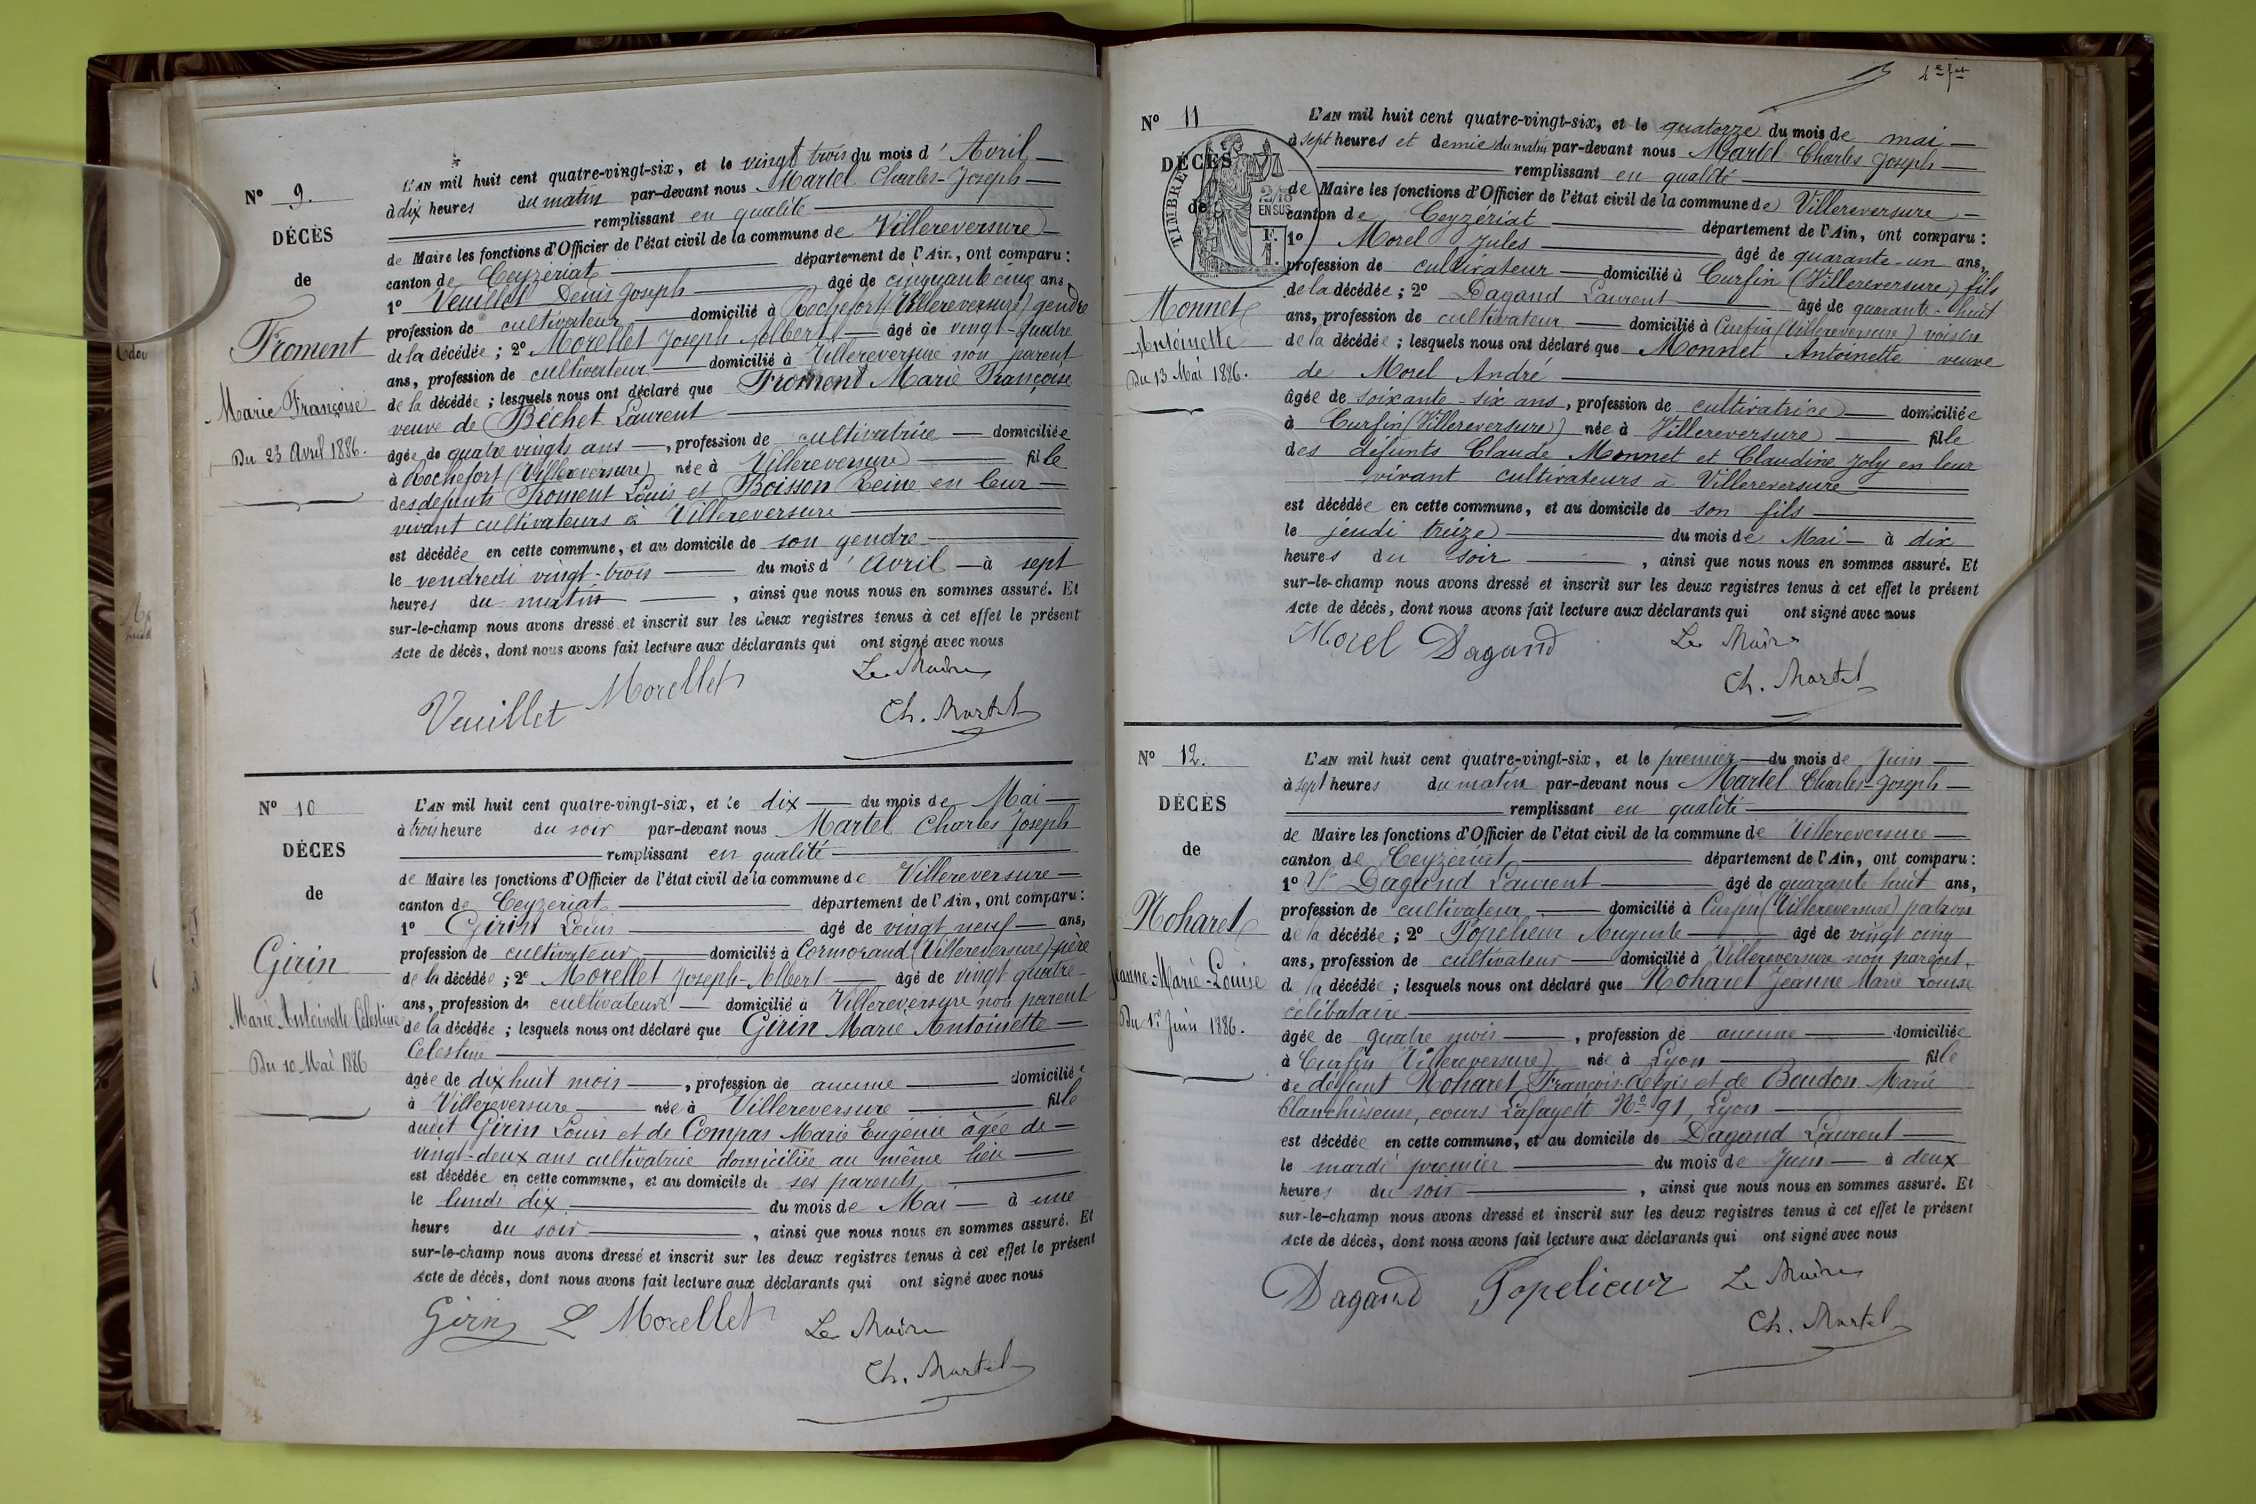 N° 9.
DÉCÈS
de
Froment
Marie Françoise
Du 23 Avril 1886.
L'AN mil huit cent quatre-vingt-six, et le vingt trois du mois d'Avril
à dix heures du matin par-devant nous Martel Charles-Joseph
remplissant en qualité
de Maire les fonctions d'Officier de l'état civil de la commune de Villereversure
canton de Ceyzeriat département de l'Ain, ont comparu :
1° Veuillet Denis Joseph âgé de cinquante cinq ans,
profession de cultivateur domicilié à Rochefort (Villereversure) gendre
de la décédée ; 2° Morellet Joseph Albert âgé de vingt-quatre
ans, profession de cultivateur domicilié à Villereversure non parent
de la décédée ; lesquels nous ont déclaré que Froment Marie Françoise
veuve de Béchet Laurent
âgée de quatre vingts ans, profession de cultivatrice domiciliée
à Rochefort (Villereversure) née à Villereversure fille
des défunts Froment Louis et Boisson Reine en leur
vivant cultivateurs à Villereversure
est décédée en cette commune, et au domicile de son gendre
le vendredi vingt-trois du mois d'avril à sept
heures du matin, ainsi que nous nous en sommes assuré. Et
sur-le-champ nous avons dressé et inscrit sur les deux registres tenus à cet effet le présent
Acte de décès, dont nous avons fait lecture aux déclarants qui ont signé avec nous
Veuillet Morellet Le Maire
Ch. Martel
N° 10
DÉCES
de
Girin
Marie Antoinette Celestine
Du 10 Mai 1886
L'AN mil huit cent quatre-vingt-six, et le dix du mois de Mai
à trois heure du soir par-devant nous Martel Charles Joseph
remplissant en qualité
de Maire les fonctions d'Officier de l'état civil de la commune de Villereversure
canton de Ceyzeriat département de l'Ain, ont comparu :
1° Girin Louis âgé de vingt neuf ans,
profession de cultivateur domicilié à Cormoraud (Villereversure) père
de la décédée ; 2° Morellet Joseph-Albert âgé de vingt quatre
ans, profession de cultivateur domicilié à Villereversure non parent
de la décédée ; lesquels nous ont déclaré que Girin Marie Antoinette
Celestine
âgée de dix huit mois, profession de aucune domiciliée
à Villereversure née à Villereversure fille
dudit Girin Louis et de Compas Marie Eugenie âgée de
vingt-deux ans cultivatrice domiciliée au même lieu
est décédée en cette commune, et au domicile de ses parents
le lundi dix du mois de Mai à une
heure du soir, ainsi que nous nous en sommes assuré. Et
sur-le-champ nous avons dressé et inscrit sur les deux registres tenus à cet effet le présent
Acte de décès, dont nous avons fait lecture aux déclarants qui ont signé avec nous
Girin L Morellet Le Maire
Ch. Martel
N° 11
DÉCÈS
de
TIMBRE
2/10
EN SUS
F.
Monnet
Antoinette
Du 13 Mai 1886.
L'AN mil huit cent quatre-vingt-six, et le quatorze du mois de mai
à sept heures et demie du matin par-devant nous Martel Charles Joseph
remplissant en qualité
de Maire les fonctions d'Officier de l'état civil de la commune de Villereversure
canton de Ceyzeriat département de l'Ain, ont comparu :
1° Morel Jules âgé de quarante-un ans,
profession de cultivateur domicilié à Curfin (Villereversure) fils
de la décédée ; 2° Dagand Laurent âgé de quarante-huit
ans, profession de cultivateur domicilié à Curfin (Villereversure) voisin
de la décédée ; lesquels nous ont déclaré que Monnet Antoinette veuve
de Morel André
âgée de soixante-six ans, profession de cultivatrice domiciliée
à Curfin (Villereversure) née à Villereversure fille
des défunts Claude Monnet et Claudine Joly en leur
vivant cultivateurs à Villereversure
est décédée en cette commune, et au domicile de son fils
le jeudi treize du mois de Mai à dix
heures du soir, ainsi que nous nous en sommes assuré. Et
sur-le-champ nous avons dressé et inscrit sur les deux registres tenus à cet effet le présent
Acte de décès, dont nous avons fait lecture aux déclarants qui ont signé avec nous
Morel Dagand Le Maire
Ch. Martel
N° 12.
DÉCÈS
de
Noharet
Jeanne-Marie-Louise
Du 1er Juin 1886.
L'AN mil huit cent quatre-vingt-six, et le premier du mois de Juin
à sept heures du matin par-devant nous Martel Charles-Joseph
remplissant en qualité
de Maire les fonctions d'Officier de l'état civil de la commune de Villereversure
canton de Ceyzeriat département de l'Ain, ont comparu :
1° Dagand Laurent âgé de quarante huit ans,
profession de cultivateur domicilié à Curfin (Villereversure) patron
de la décédée ; 2° Popelieur Auguste âgé de vingt cinq
ans, profession de cultivateur domicilié à Villereversure non parent
de la décédée ; lesquels nous ont déclaré que Noharet Jeanne Marie Louise
célibataire
âgée de quatre mois, profession de aucune domiciliée
à Curfin (Villereversure) née à Lyon fille
de défunt Noharet François-Régis et de Boudon Marie
blanchisseuse, cours Lafayett N° 91, Lyon
est décédée en cette commune, et au domicile de Dagand Laurent
le mardi premier du mois de Juin à deux
heures du soir, ainsi que nous nous en sommes assuré. Et
sur-le-champ nous avons dressé et inscrit sur les deux registres tenus à cet effet le présent
Acte de décès, dont nous avons fait lecture aux déclarants qui ont signé avec nous
Dagand Popelieur Le Maire
Ch. Martel